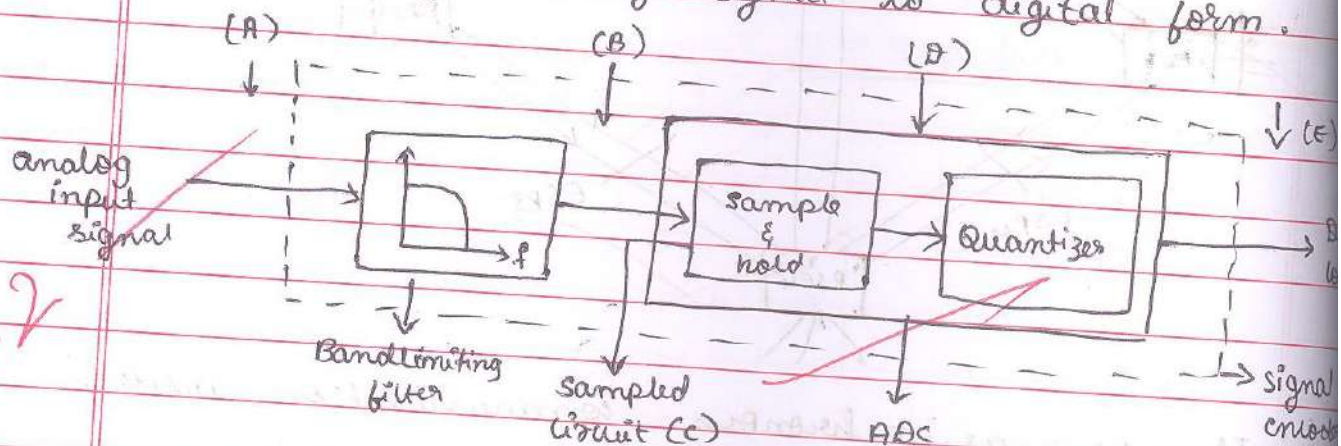 digital form.
(A)
(B)
(D)
(E)
analog
input
signal
f
sample
&
hold
Quantizer
Bandlimiting
filter
sampled
circuit (C)
ADC
signal
2